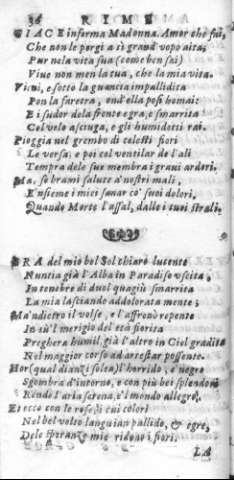 36 RIME
GIACE inferma Madonna. Amor che fai,
Che non le porgi a sì grand'vopo aita;
Pur nela vita sua (come ben sai)
Viue non men la tua, che la mia vita.
Vieni, e sotto la guancia impallidita
Pon la faretra, ond'ella posi homai:
E i sudor dela fronte egra, e smarrita
Col velo asciuga, e gli humidetti rai.
Pioggia nel grembo di celesti fiori
Le versa: e poi col ventilar de l'ali
Tempra dele sue membra i grani ardori.
Ma, se brami salute a'nostri mali,
Ensieme i miei sanar co' suoi dolori,
Quando Morte l'assal, dalle i tuoi strali.
ERA del mio bel Sol chiaro lucente
Nuntia già l'Alba in Paradiso vscita,
In tenebre di duol quagiù smarrita
La mia lasciando addolorata mente;
Ma'ndietro il volse, e l'affrenò repente
In sù'l merigio del età fiorita
Preghera humil, già l'altro in Ciel gradita
Nel maggior corso ad arrestar possente.
Hor (qual dianzi solea) l'horrido, e negro
Sgombra d'intorno, e con più bel splendore
Rende l'aria serena, e'l mondo allegro.
Et ecco con le rose, i cui colori
Nel bel volto languian pallido, & egro,
Dele speranze mie ridono i fiori.
La